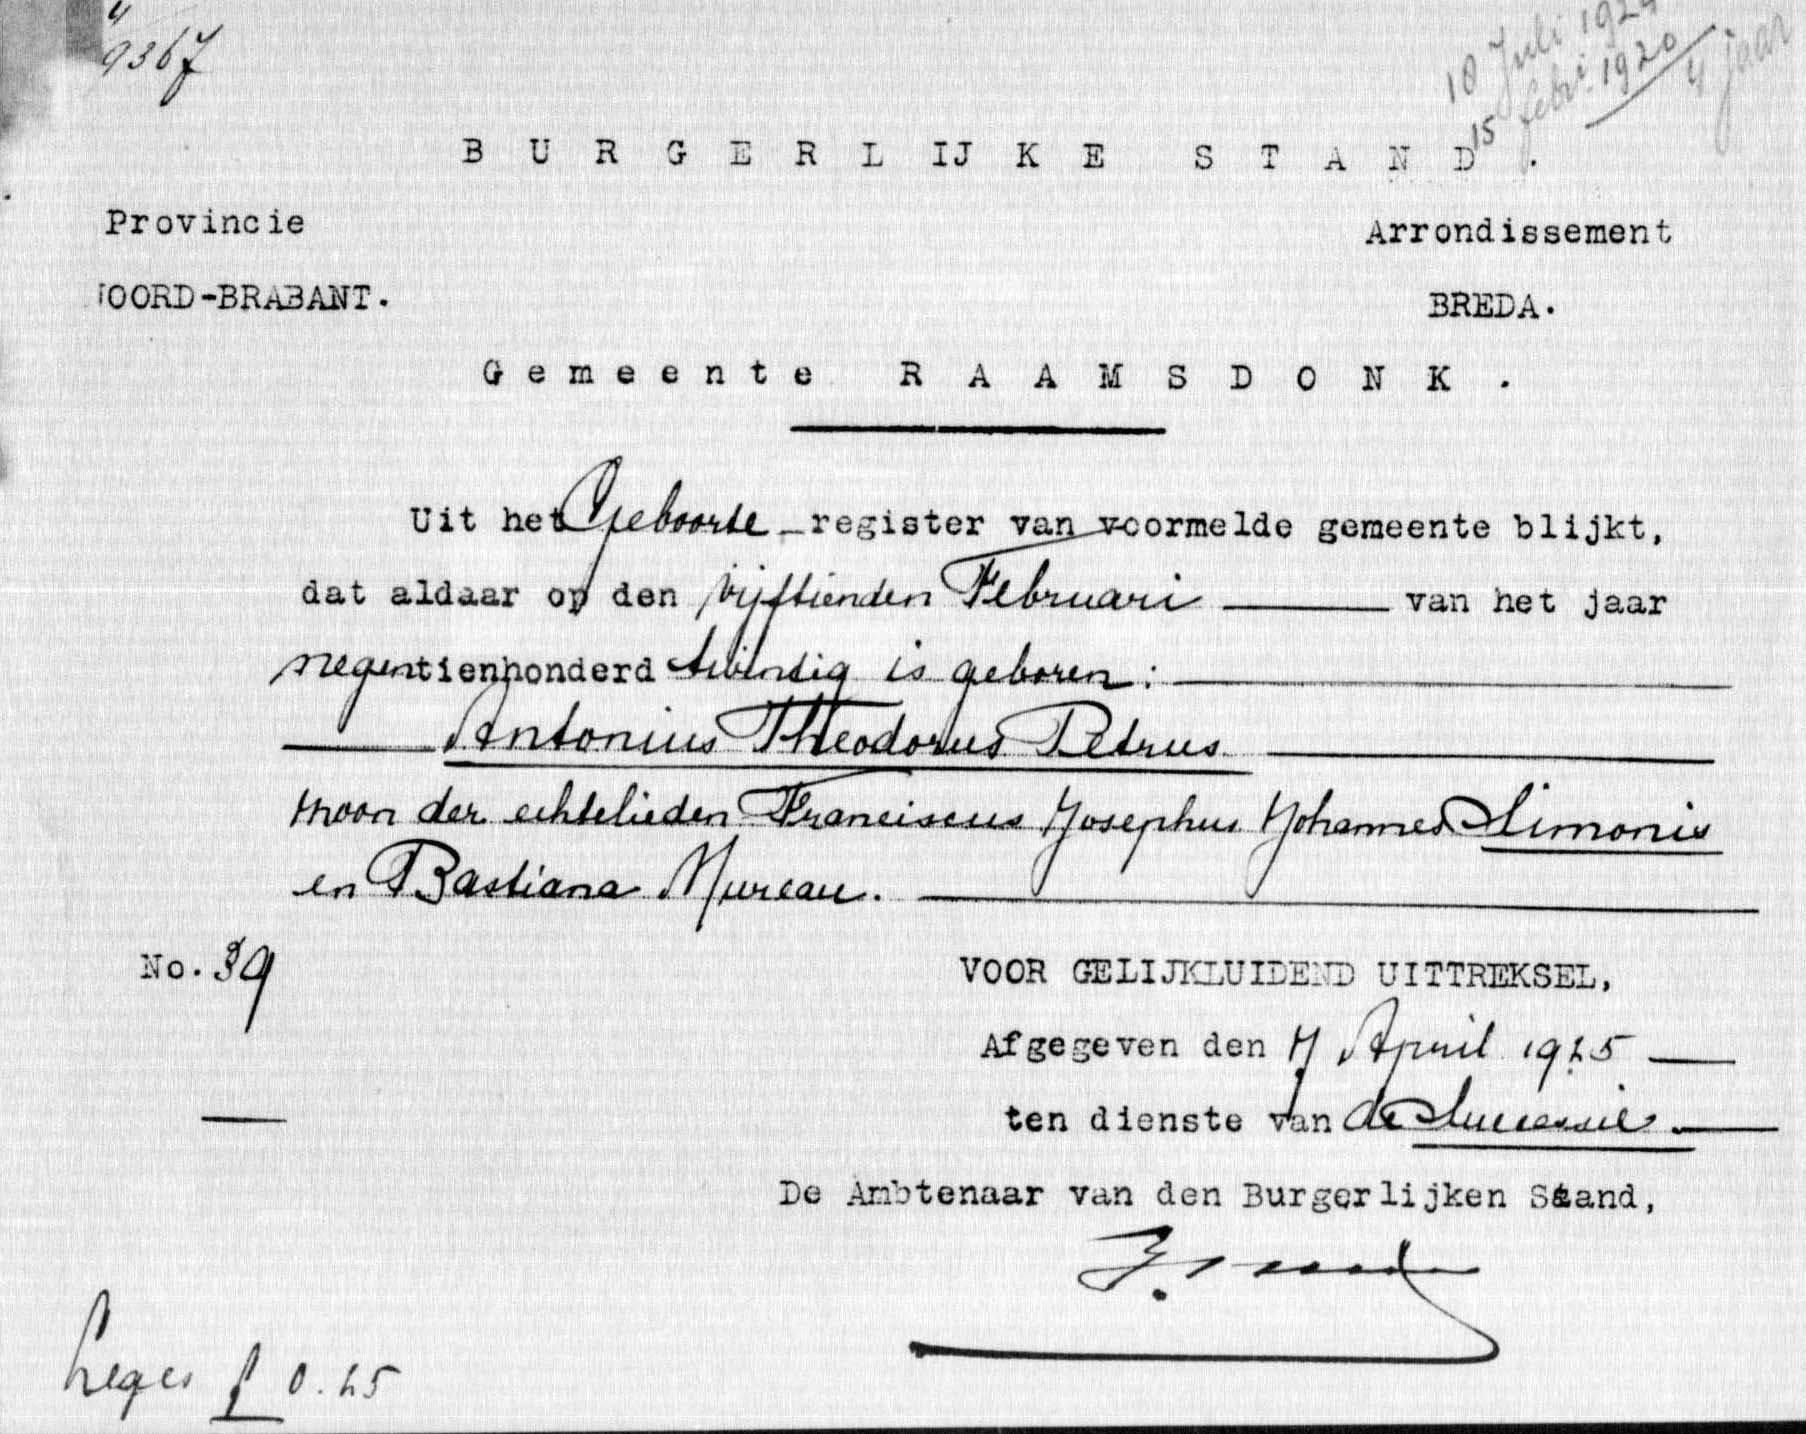 4
9367
10 Juli 1924
15 febr. 1920
4 jaar
BURGERLIJKE STAND.
Provincie
OORD-BRABANT.
Arrondissement
BREDA.
Gemeente RAAMSDONK.
Uit het Geboorte-register van voormelde gemeente blijkt,
dat aldaar op den vijftienden Februari van het jaar
negentienhonderd twintig is geboren:
Antonius Theodorus Petrus
zoon der echtelieden Franciscus Josephus Johannes Simonis
en Bastiana Mureau.
No. 39
VOOR GELIJKLUIDEND UITTREKSEL,
Afgegeven den 7 April 1925
ten dienste van de Successie.
De Ambtenaar van den Burgerlijken Stand,
Leges f 0.25